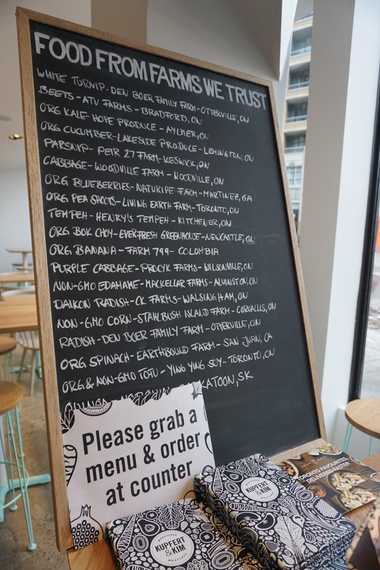 FOOD FROM FARMS WE TRUST
WHITE TURNIP - DEN BOER FAMILY FARM - OTTERVILLE, ON
BEETS - ATV FARMS - BRADFORD, ON
ORG KALE - HOPE PRODUCE - AYLMER, ON
ORG CUCUMBER - LAKESIDE PRODUCE - LEMINGTON, ON
PARSNIP - PEIR 27 FARM - KESWICK, ON
CABBAGE - WOODVILLE FARM - INNISVILLE, ON
ORG BLUEBERRIES - NATURIPE FARM - MARTINEZ, GA
ORG PEA SHOOTS - LIVING EARTH FARM - TORONTO, ON
TEMPEH - HENRY'S TEMPEH - KITCHENER, ON
ORG BOK CHOY - EVERFRESH GREENHOUSE - NEWCASTLE, ON
ORG BANANA - FARM 799 - COLOMBIA
PURPLE CABBAGE - PROCYK FARMS - WILSONVILLE, ON
NON-GMO EDAMAME - MACKELLAR FARMS - ALVINSTON, ON
DAIKON RADISH - CK FARMS - WALSINGHAM, ON
NON-GMO CORN - STAHLBUSH ISLAND FARM - CORVALLIS, ON
RADISH - DEN BOER FAMILY FARM - OTTERVILLE, ON
ORG SPINACH - EARTHBOUND FARM - SAN JUAN, CA
ORG & NON-GMO TOFU - YING YING SOY - TORONTO, ON
KATOON, SK
Please grab a
menu & order
at counter
KUPFERT
& KIM
KUPFERT
& KIM